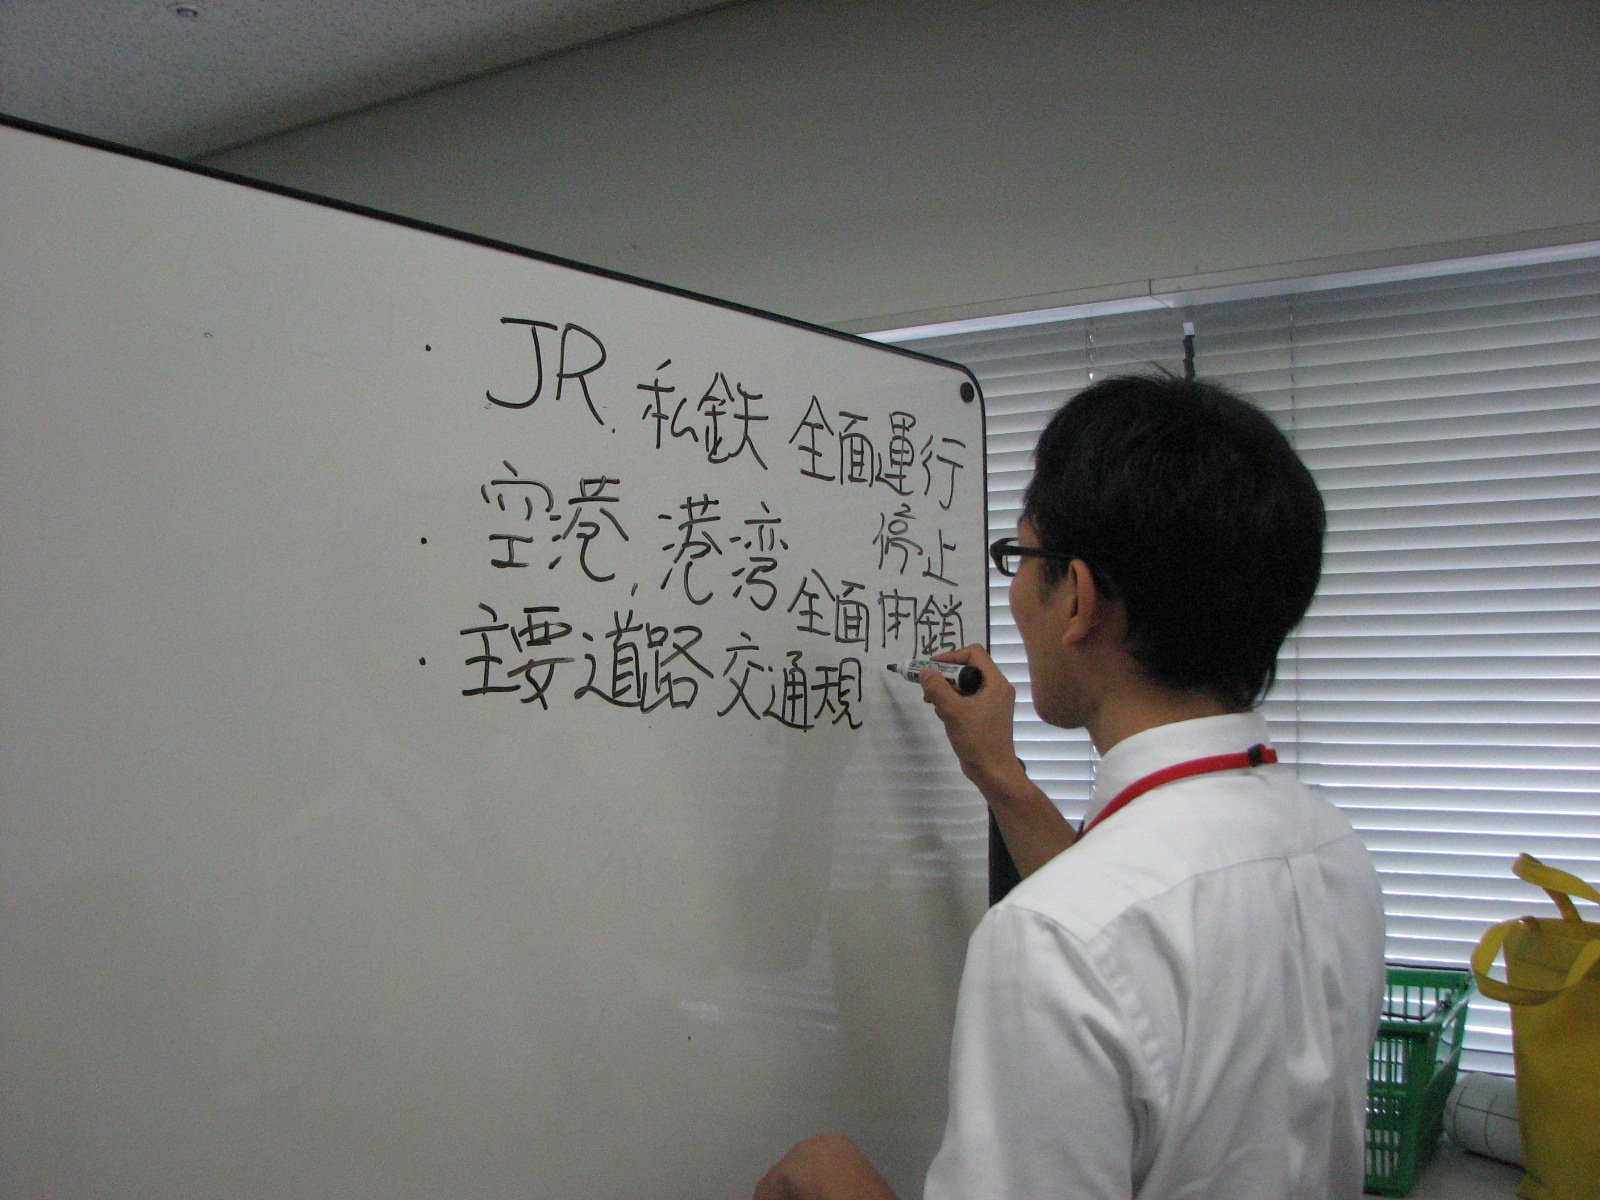 ・JR、私鉄 全面運行
停止
・空港、港湾 全面閉鎖
・主要道路交通規